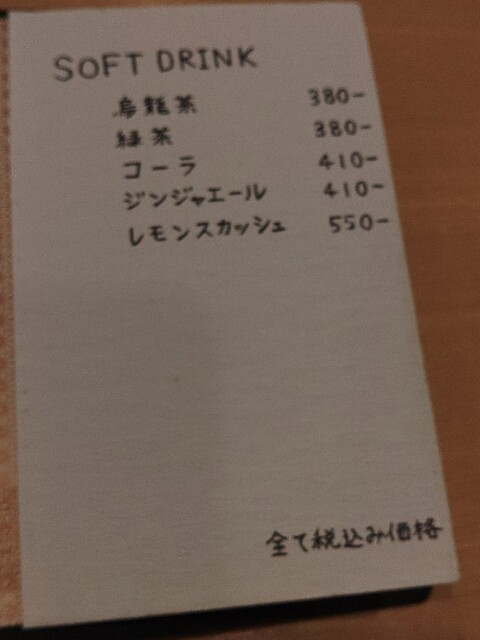 SOFT DRINK
烏龍茶 380-
緑茶 380-
コーラ 410-
ジンジャエール 410-
レモンスカッシュ 550-
全て税込み価格